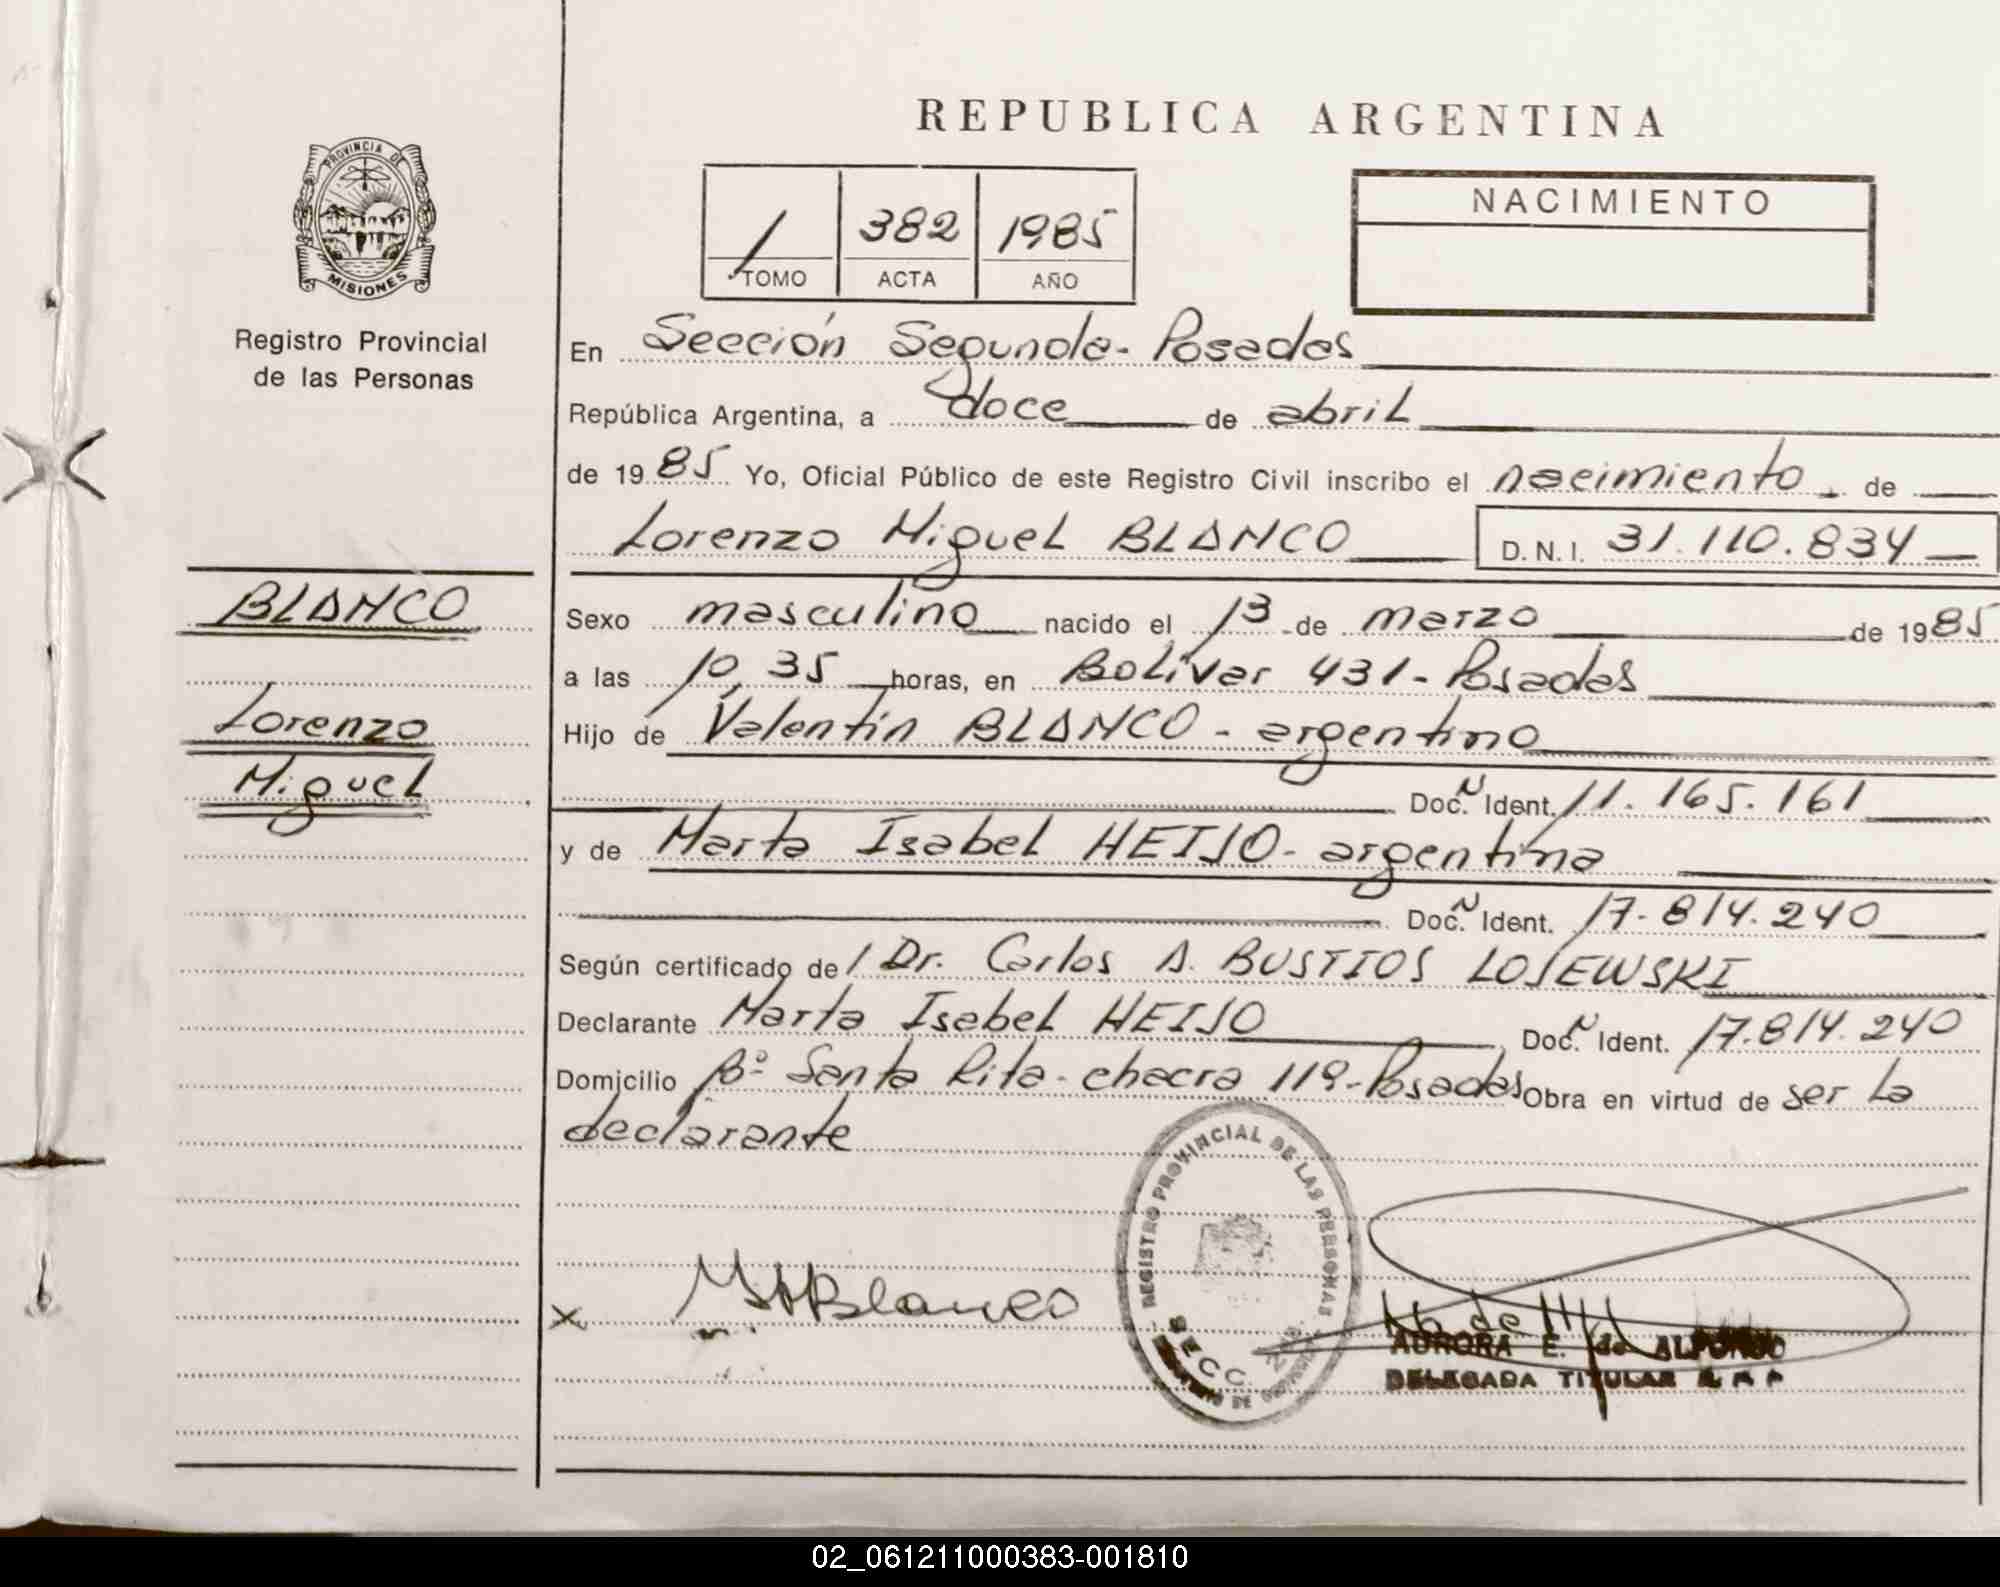 REPUBLICA ARGENTINA
PROVINCIA DE
MISIONES
Registro Provincial
de las Personas
1 382 1985
TOMO ACTA AÑO
NACIMIENTO
En Sección Segunda- Posadas
República Argentina, a doce de abril
de 1985 Yo, Oficial Público de este Registro Civil inscribo el nacimiento de
Lorenzo Miguel BLANCO D.N.I. 31.110.834
BLANCO
Lorenzo
Miguel
Sexo masculino nacido el 13 de marzo de 1985
a las 10,35 horas, en Bolívar 431- Posadas
Hijo de Valentín BLANCO - argentino
Doc. Ident. 11.165.161
y de Marta Isabel HEIJO- argentina
Doc. Ident. 17.814.240
Según certificado de l Dr. Carlos A. BUSTIOS LOSEWSKI
Declarante Marta Isabel HEIJO Doc. Ident. 17.814.240
Domicilio Bº Santa Rita- chacra 119- Posadas Obra en virtud de ser la
declarante
REGISTRO PROVINCIAL DE LAS PERSONAS
SECC.
x Blanco
AURORA E. de
DELEGADA TITULAR
02_061211000383-001810